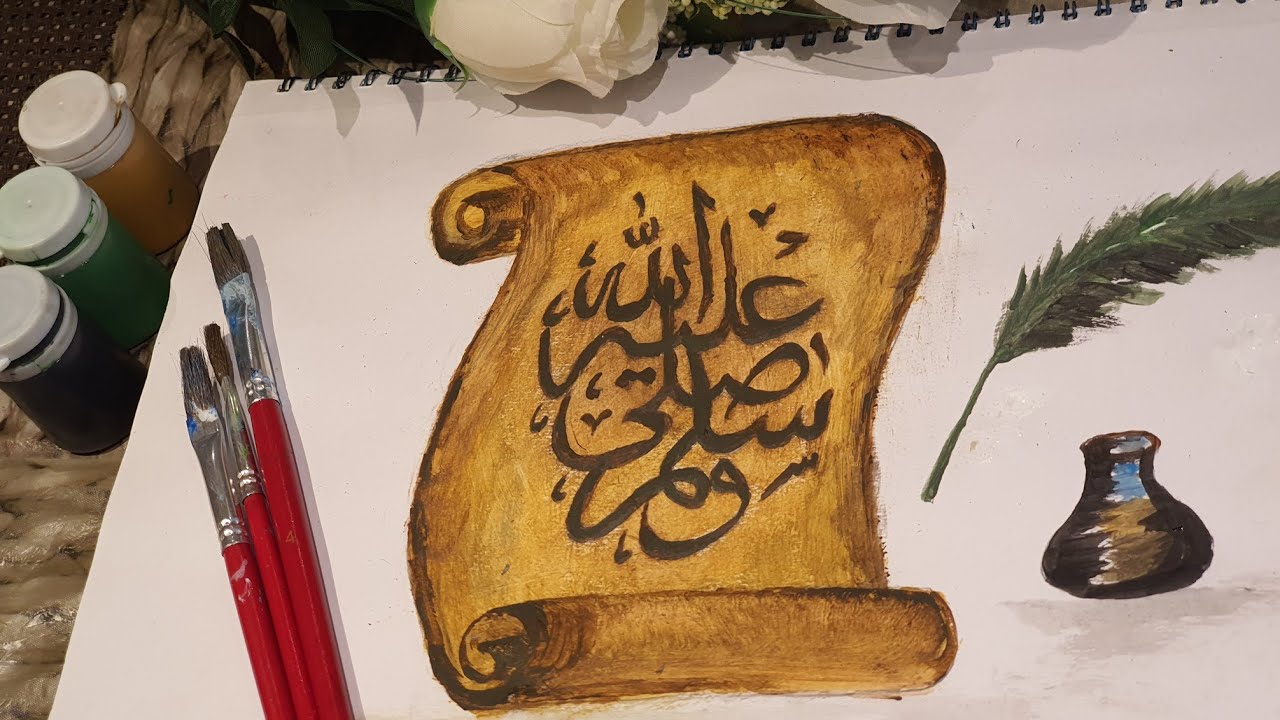 صلى الله عليه وسلم
4